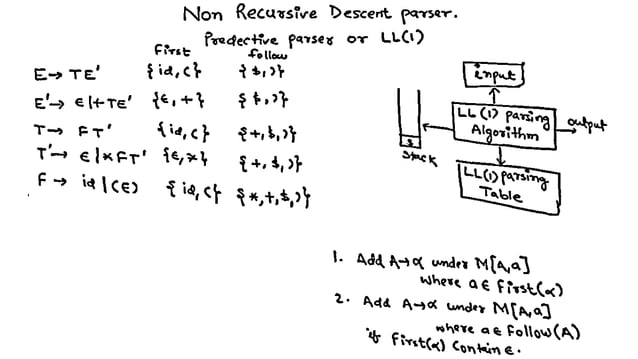 Non Recursive Descent parser.
Predective parser or LL(1)
First Follow
E→ TE' {id, (} {$, )}
E'→ ε|+TE' {ε, +} {$, )}
T→ FT' {id, (} {+, $, )}
T'→ ε|*FT' {ε, *} {+, $, )}
F→ id|(E) {id, (} {*, +, $, )}
input
LL(1) Parsing
Algorithm
output
$
Stack
LL(1) Parsing
Table
1. Add A→α under M[A,a]
where a∈First(α)
2. Add A→α under M[A,a]
where a∈Follow(A)
if First(α) Contain ε.